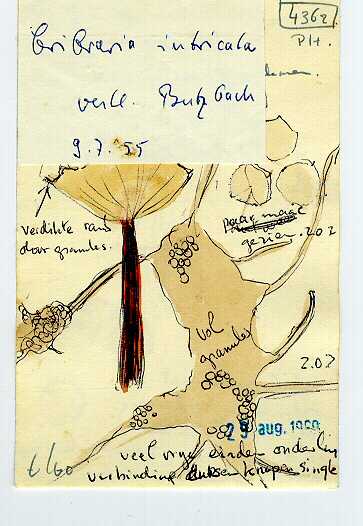 4362
PH.
Cribraria intricata
verz. Butzbach
9.7.55
verdikte rand
door granules.
paar maal
gezien. 202
vol
granules
2.02
29 aug. 1960
veel vrije einden onderling
verbinding tussen knopen single
6/60